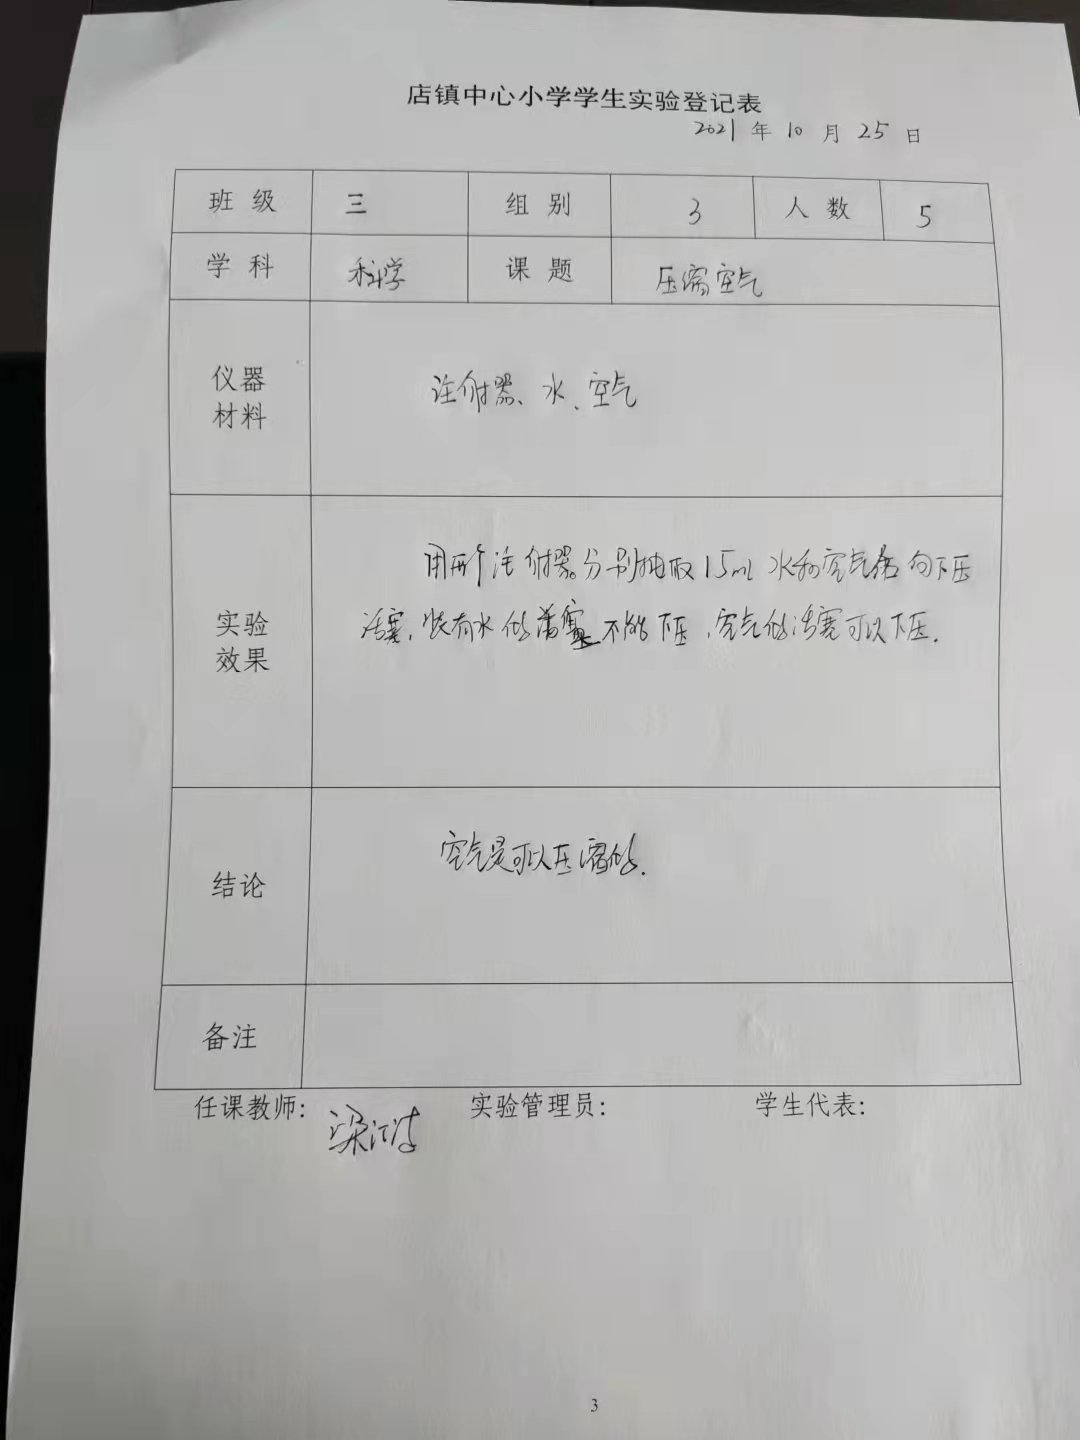 店镇中心小学学生实验登记表
2021 年 10 月 25 日
班 级 三 组 别 3 人 数 5
学 科 科学 课 题 压缩空气
仪器
材料
注射器、水、空气
用两个注射器分别抽取15mL水和空气 向下压
实验
效果
活塞,装有水的活塞不能下压,空气的活塞可以下压.
结论
空气是可以压缩的.
备注
任课教师: 梁江波 实验管理员: 学生代表:
3